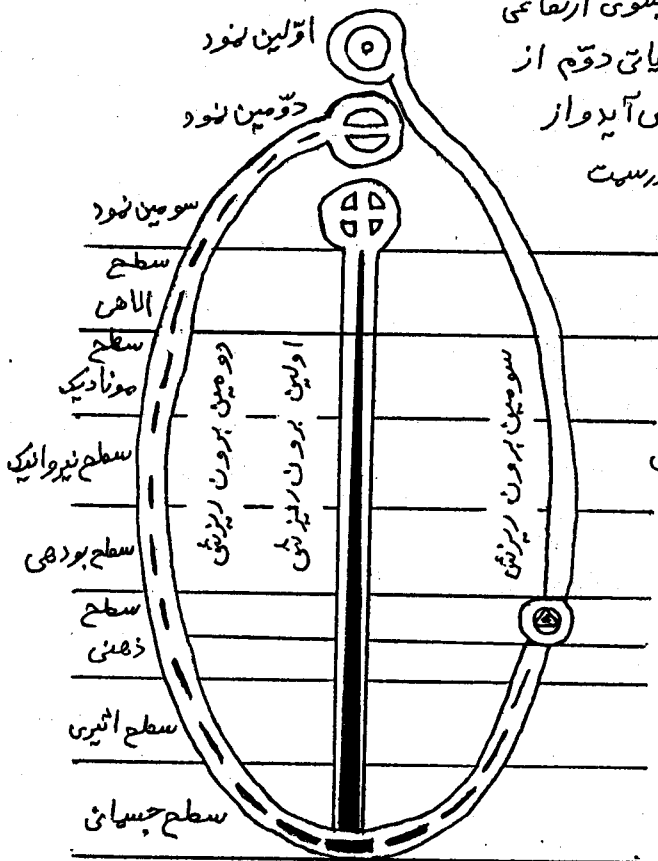 پهلوی ارتفاعی
یاتی دوّم از
ی‌آید و از
رسمت
اوّلین نمود
دوّمین نمود
سومین نمود
سطح
الاهی
سطح
مونادیک
سطح نیروانیک
سطح بودهی
سطح
ذهنی
سطح اثیری
سطح جسمانی
سومین برون ریزش
اولین برون ریزش
دومین برون ریزش